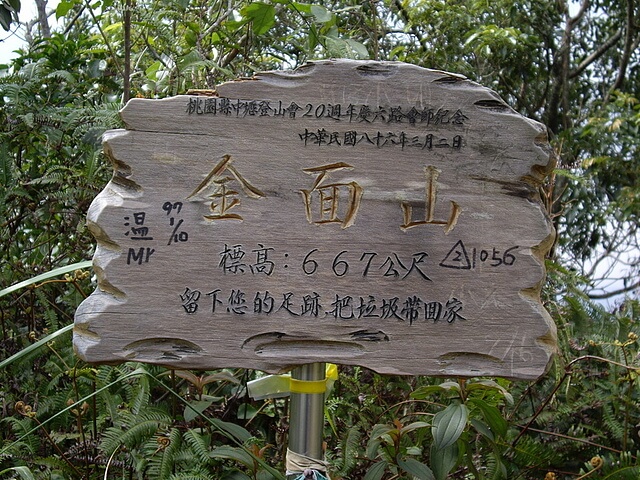 桃園縣中壢登山會20週年慶六路會師紀念
中華民國八十六年三月二日
金面山
溫 97/10
Mr
標高：667公尺 △2 1056
留下您的足跡.把垃圾帶回家